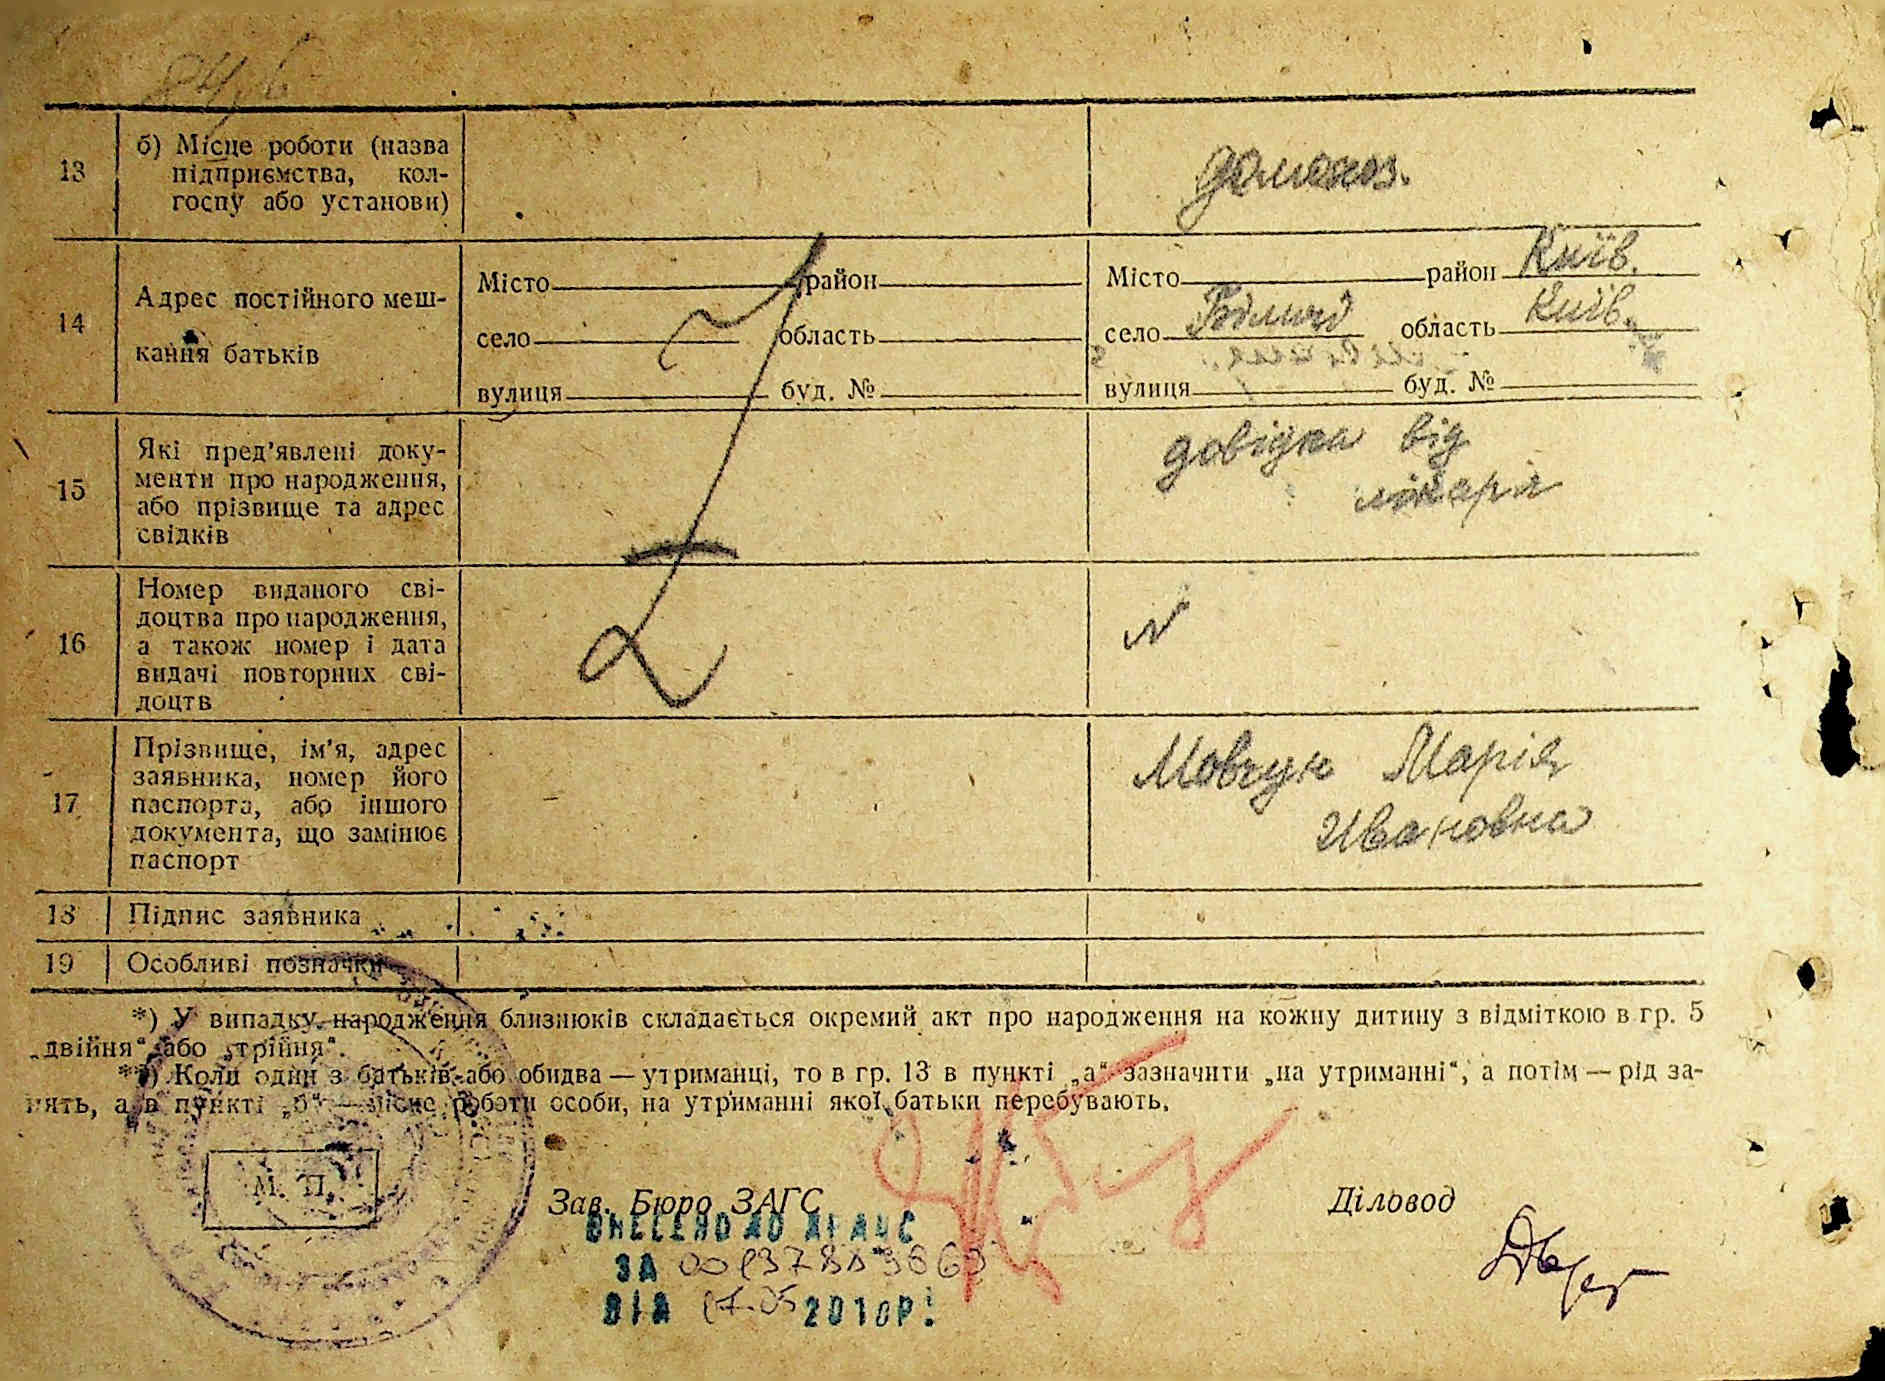 13
б) Місце роботи (назва
підприємства, кол-
госпу або установи)
домогоз.
14
Адрес постійного меш-
кання батьків
Місто район
село область
вулиця буд. №
Місто район Київ.
село Білогод область Київ.
вулиця буд. №
15
Які пред'явлені доку-
менти про народження,
або прізвище та адрес
свідків
довідка від
лікаря
16
Номер виданого сві-
доцтва про народження,
а також номер і дата
видачі повторних сві-
доцтв
N
17
Прізвище, ім'я, адрес
заявника, номер його
паспорта, або іншого
документа, що замінює
паспорт
Мовчун Марія
Ивановна
18 Підпис заявника
19 Особливі позначки
*) У випадку народження близнюків складається окремий акт про народження на кожну дитину з відміткою в гр. 5
„двійня“ або „трійня“.
**) Коли один з батьків або обидва — утриманці, то в гр. 13 в пункті „а“ зазначити „на утриманні“, а потім — рід за-
нять, а в пункті „б“ — місце роботи особи, на утриманні якої батьки перебувають.
М. П.
Зав. Бюро ЗАГС
Діловод
ВНЕСЕНО ДО ДРАЦС
ЗА
ВІД 2010Р.